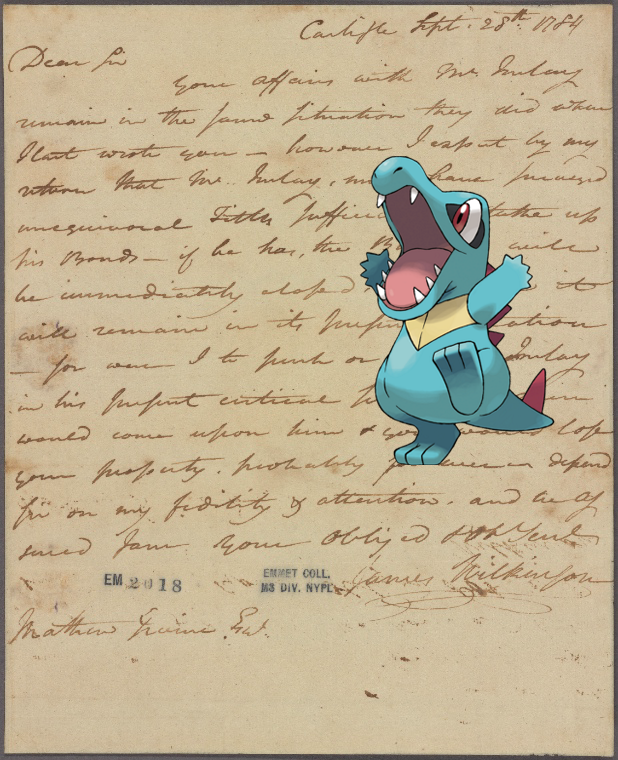 Carlisle Sept. 28th 1784
Dear Sir
your affairs with Mr. Imlay
remain in the same situation they did when
I last wrote you — however I expect by my
return that Mr. Imlay, have procured
unequivocal Titles up
his Bonds — if he has, the will
be immediately closed it
will remain in its
— for were I to push or Imlay
in his present critical
would come upon him & you would lose
your property. probably depend
Sir on my fidility & attention. and be as
sured I am your Obliged
James Wilkinson
EM 2018
EMMET COLL.
MS DIV. NYPL
Mathew Esqr.